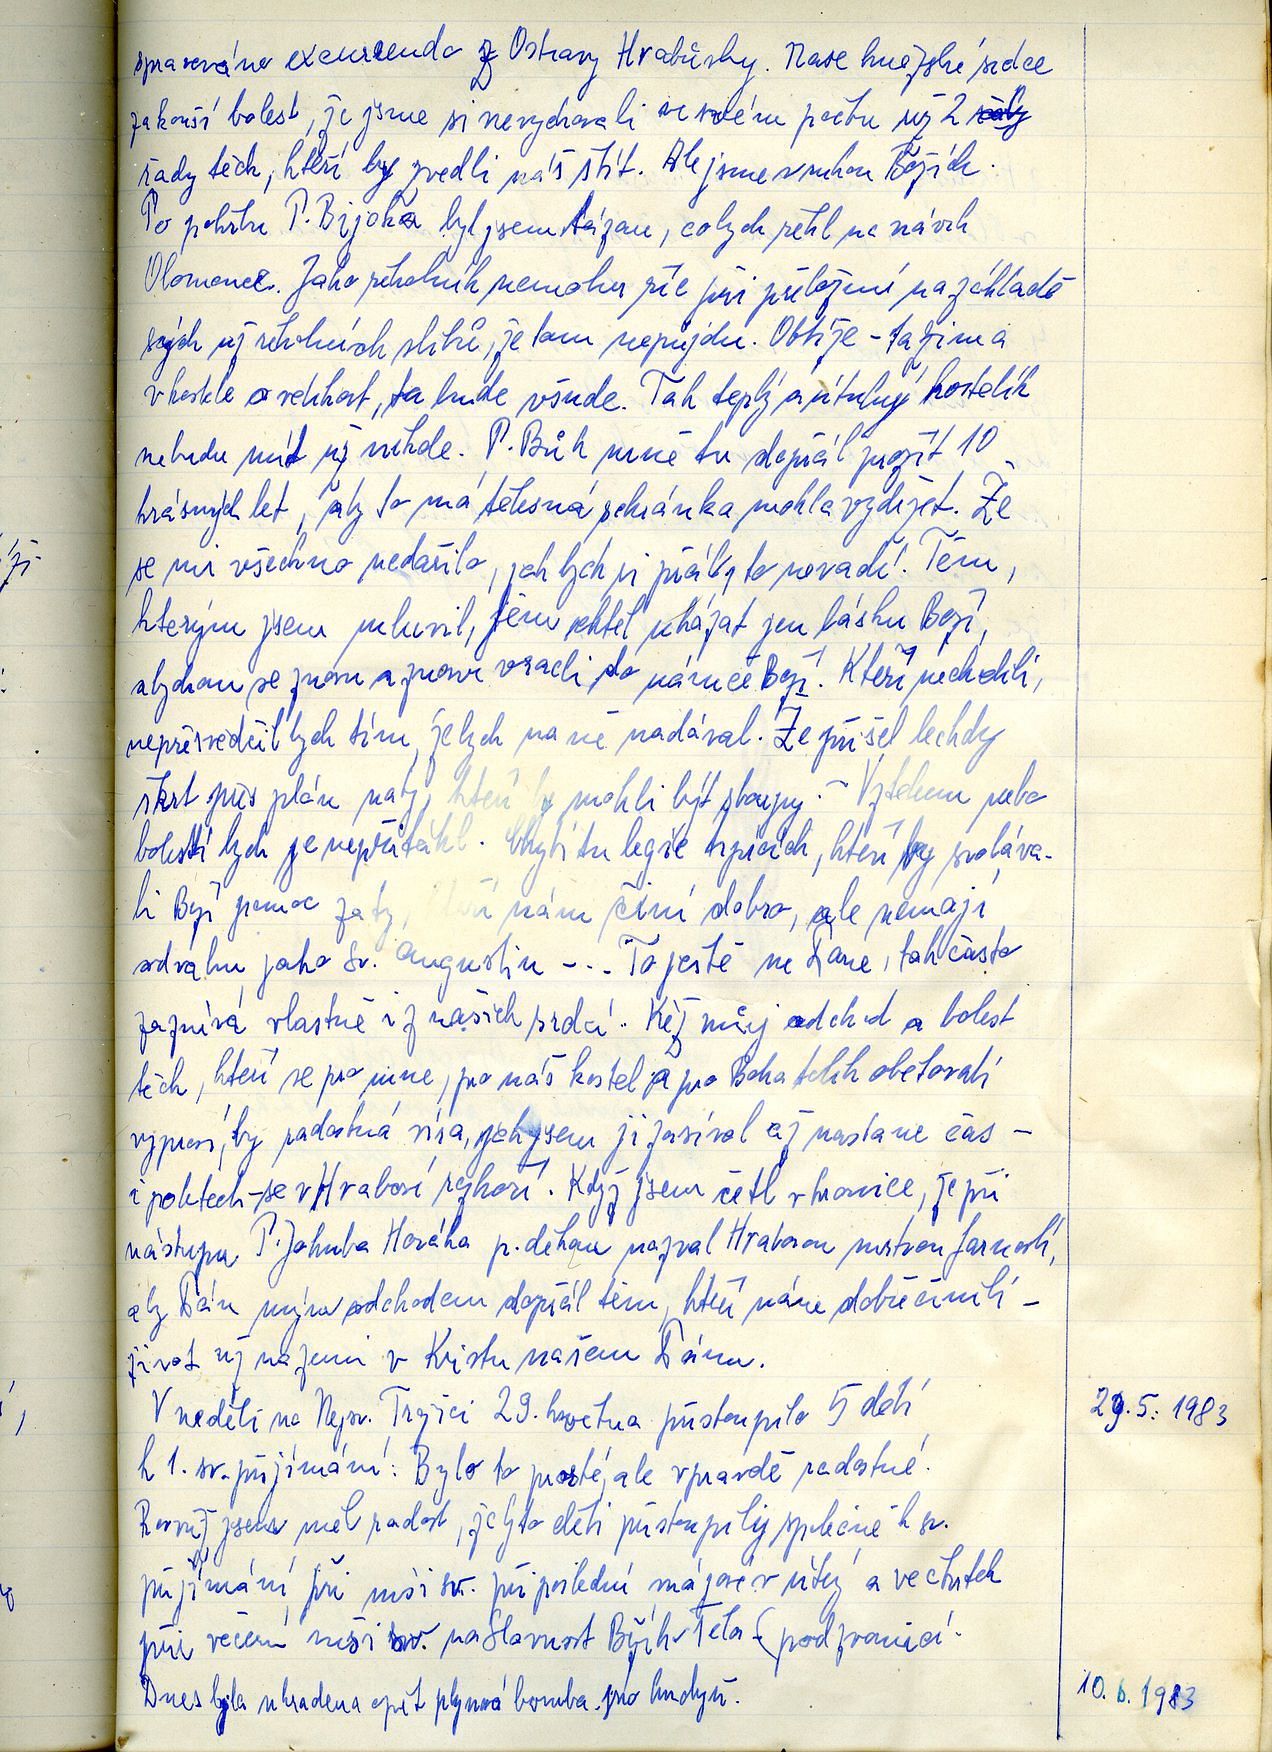 spravována excurrendo z Ostravy Hrabůvky. Naše kněžské srdce
zakouší bolest, že jsme si nevychovali ve svém počtu už 2
řady těch, kteří by zvedli náš štít. Ale jsme v rukou Božích.
Po pohřbu P. Bijoka byl jsem tázán, co bych řekl na návrh
Olomouce. Jako řeholník nemohu říc při přeložení na základě
svých už řeholních slibů, že tam nepůjdu. Obtíže - ta zima
v kostele a vlhkost, ta bude všude. Tak teplý a útulný kostelík
nebudu mít už nikde. P. Bůh mně tu dopřál prožít 10
krásných let, aby to má tělesná schránka mohla vydržet. Že
se mi všechno nedařilo, jak bych si přál, to nevadí. Těm,
kterým jsem mluvil, jsem chtěl ukázat jen lásku Boží,
abychom se znovu a znovu vraceli do náruče Boží. Kteří nechodili,
nepřesvědčil bych tím, že bych na ně nadával. Že přišel leckdy
škrt přes plán na ty, kteří by mohli být sloupy. - Vztekem nebo
bolestí bych je nepřitáhl. Chybí tu legie trpících, kteří by svoláva-
li Boží pomoc za ty, kteří nám činí dobro, ale nemají
odvahu jako sv. Augustin - .. To ještě ne Pane, tak často
zaznívá vlastně i z našich srdcí. Kéž můj odchod a bolest
těch, kteří se pro mne, pro náš kostel a pro Boha tolik obětovali
vyprosí, by radostná víra, jak jsem ji zasíval až nastane čas -
i po letech - se v Hrabové rozhoří. Když jsem četl v kronice, že při
nástupu P. Jakuba Horáka p. děkan nazval Hrabovou mrtvou farností,
aby Pán mým odchodem dopřál těm, kteří nám dobře činili -
život už na zemi v Kristu našem Pánu.
V neděli na Nejsv. Trojici 29. května přistoupilo 5 dětí 29. 5. 1983
k 1. sv. přijímání. Bylo to prosté, ale vpravdě radostné.
Rovněž jsem měl radost, že tyto děti přistoupily společně k sv.
přijímání při mši sv. při poslední májové v úterý a ve čtvrtek
při večerní mši sv. na Slavnost Božího Těla - (pod zvonicí.
Dnes byla ukradena opět plynová bomba pro kuchyň. 10. 6. 1983